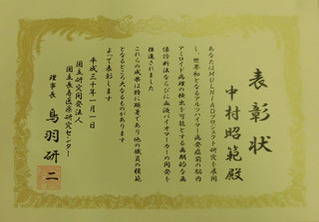 表彰状
中村昭範殿
あなたはMULNIADプロジェクト研究を展開
し、世界初となるアルツハイマー病発症前の脳内
アミロイド病理の検出を可能とする画期的な画
像診断法ならびに血液バイオマーカーの開発を
推進されました
これらの成果は特に顕著であり他の職員の模範
となるところ大なるものがあります
よって表彰します
平成三十年一月一日
国立研究開発法人
国立長寿医療研究センター
理事長 鳥羽研二